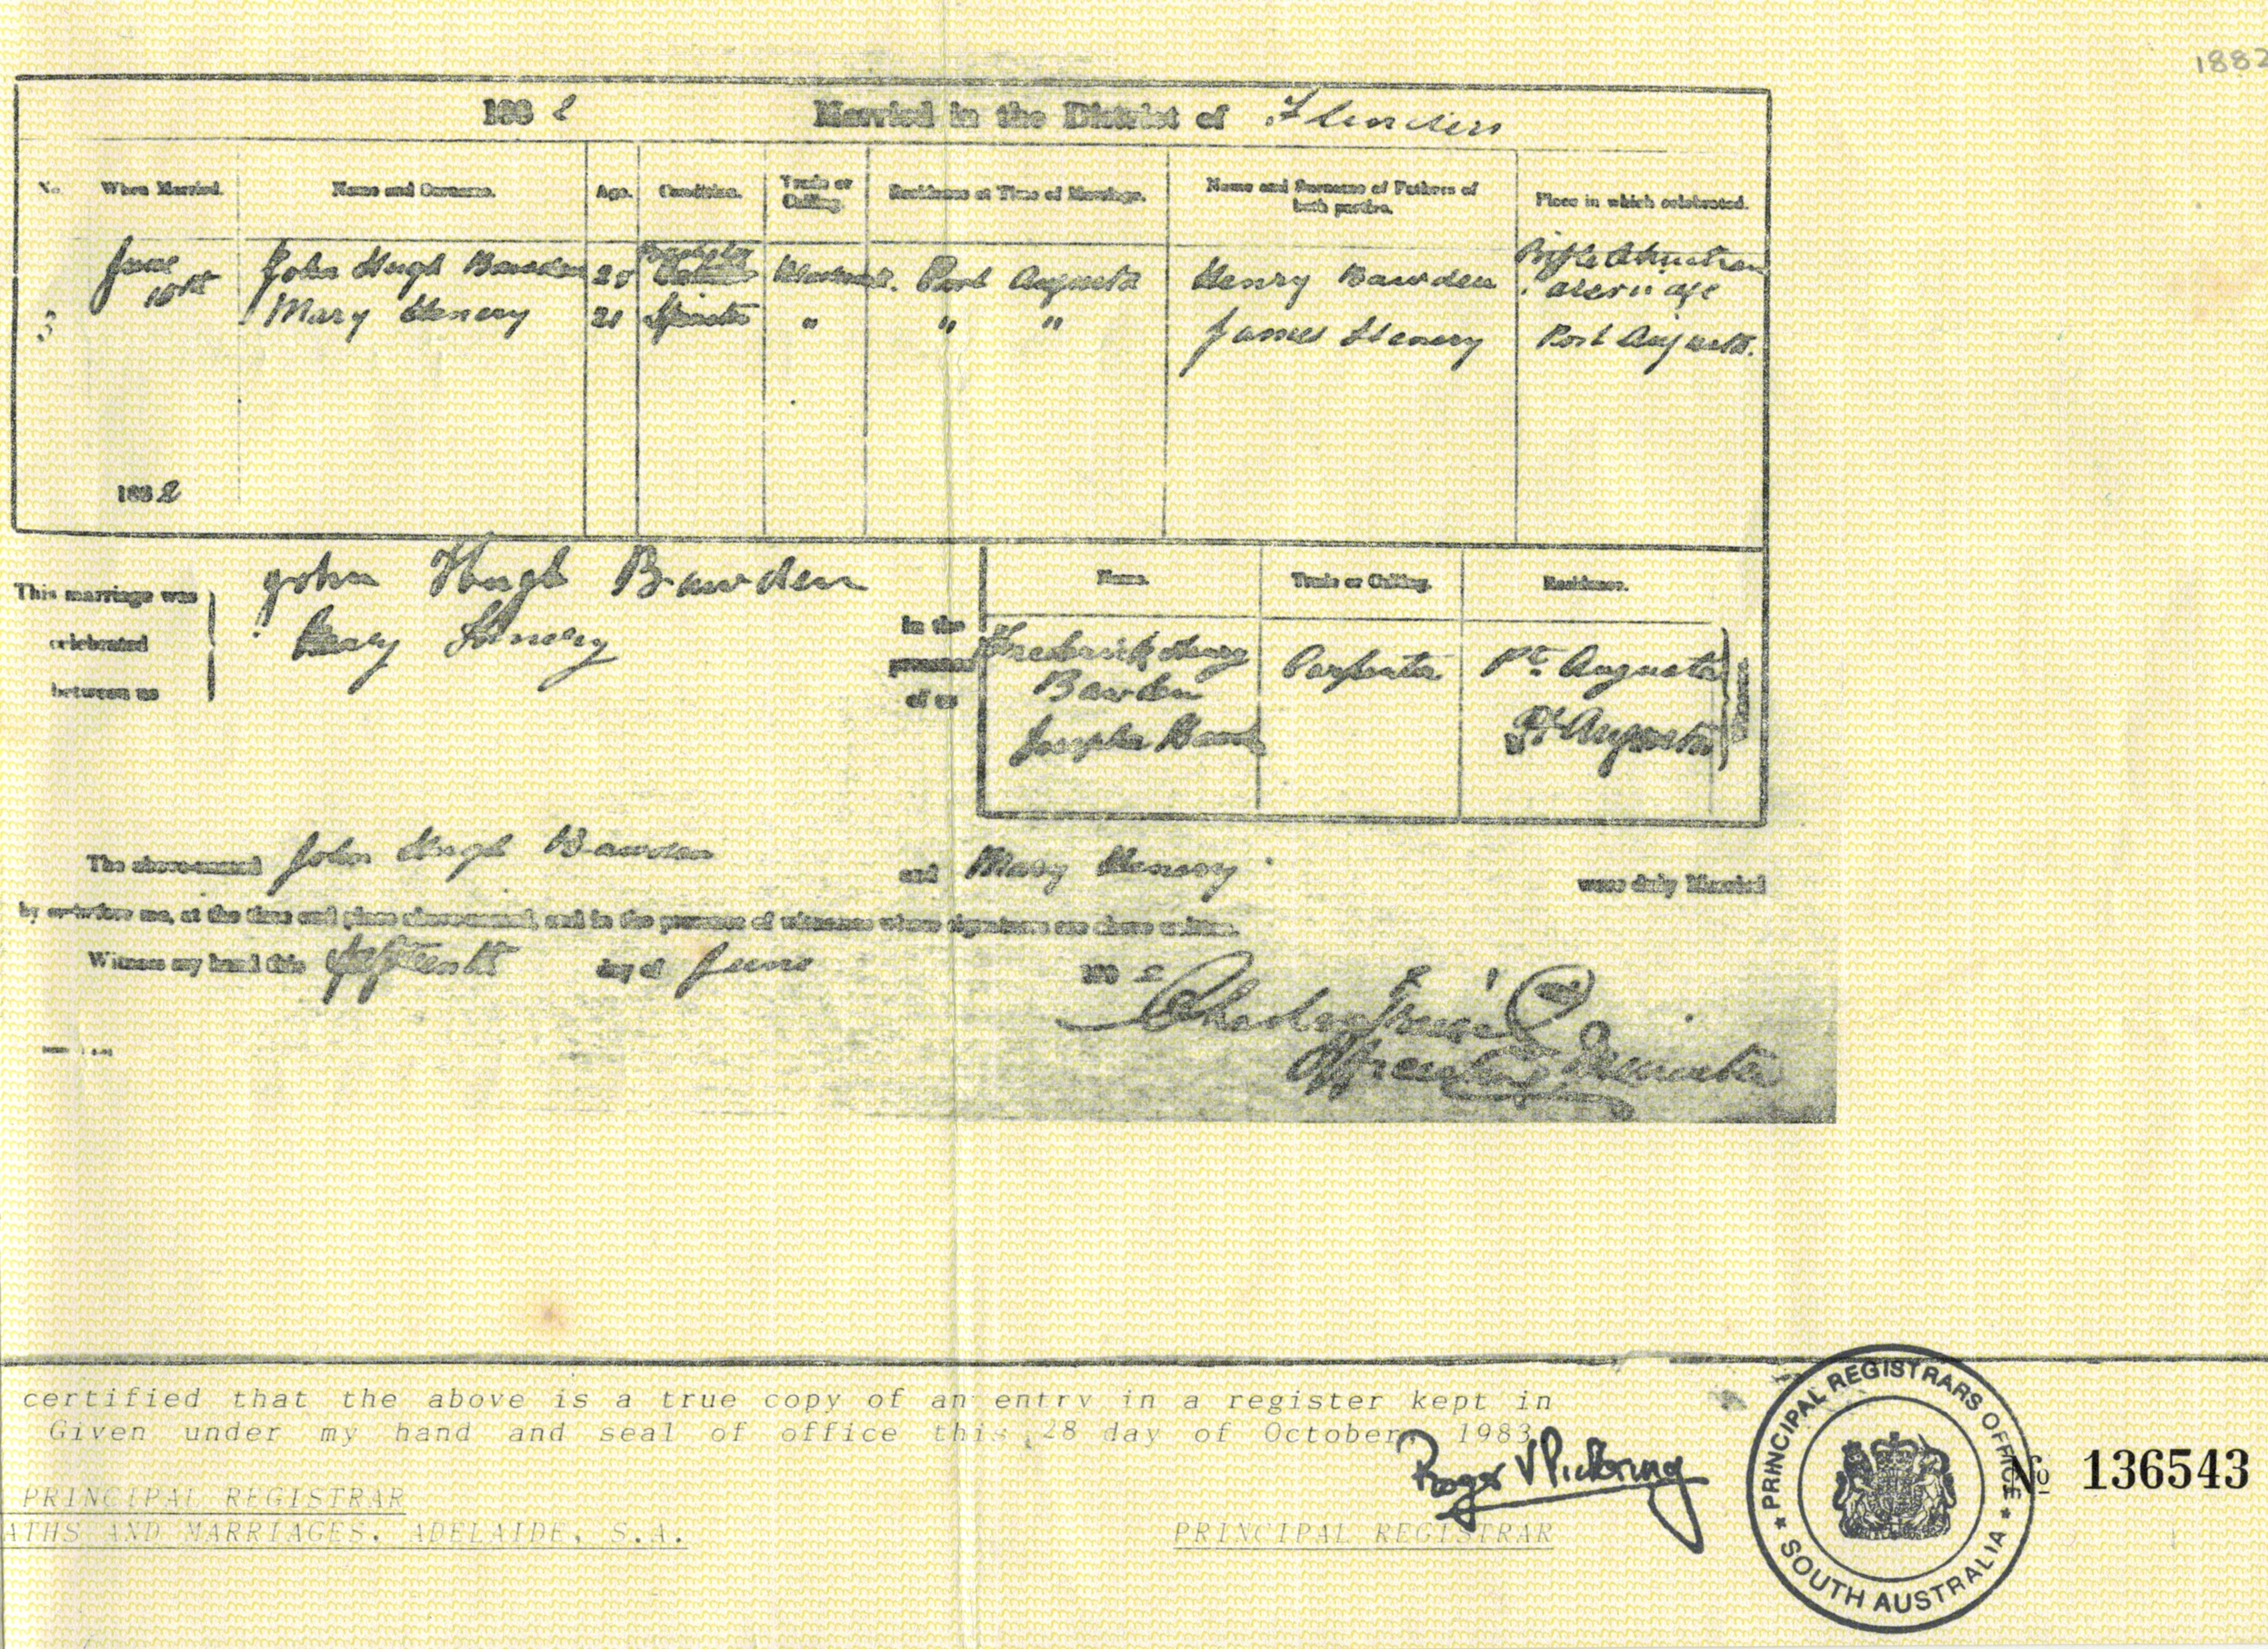 1882
1882 Married in the District of Flinders
No. When Married. Name and Surname. Age. Condition. Trade or Calling. Residence at Time of Marriage. Name and Surname of Fathers of both parties. Place in which celebrated.
June 15th John Hugh Bawden Bachelor Port Augusta Henry Bawden Bible Christian
3 Mary Henery 21 Spinster " " " James Henery Port Augusta.
1882
This marriage was celebrated between us
John Hugh Bawden
Mary Henery
In the presence of us
Name. Trade or Calling. Residence.
Frederick Henry Bawden Carpenter Pt. Augusta
Joseph Pt Augusta
The above-named John Hugh Bawden and Mary Henery were duly Married
by or before me, at the time and place above-named, and in the presence of witnesses whose signatures are above written.
Witness my hand this fifteenth day of June 1882
Charles
Officiating Minister
certified that the above is a true copy of an entry in a register kept in
Given under my hand and seal of office this 28 day of October, 1983.
Roger V Pickering
PRINCIPAL REGISTRAR
ATHS AND MARRIAGES, ADELAIDE, S.A.
PRINCIPAL REGISTRAR
PRINCIPAL REGISTRARS OFFICE
SOUTH AUSTRALIA
No 136543